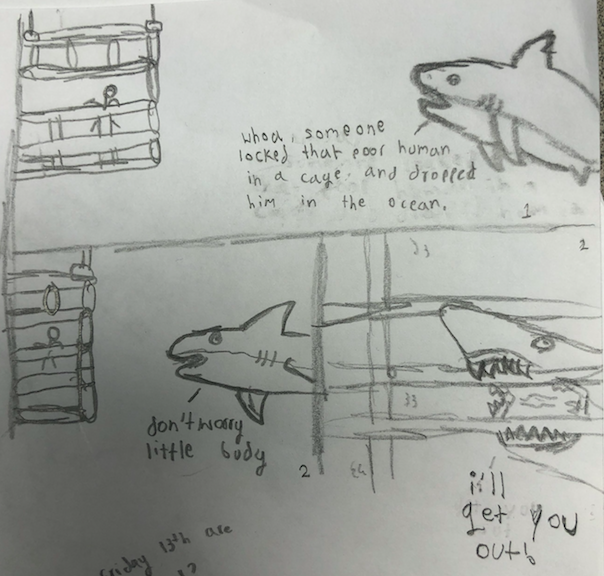 whoa, someone
locked that poor human
in a cage. and dropped
him in the ocean.
1
2
don't worry
little body
2
i'll
get you
out!
Friday 13th are